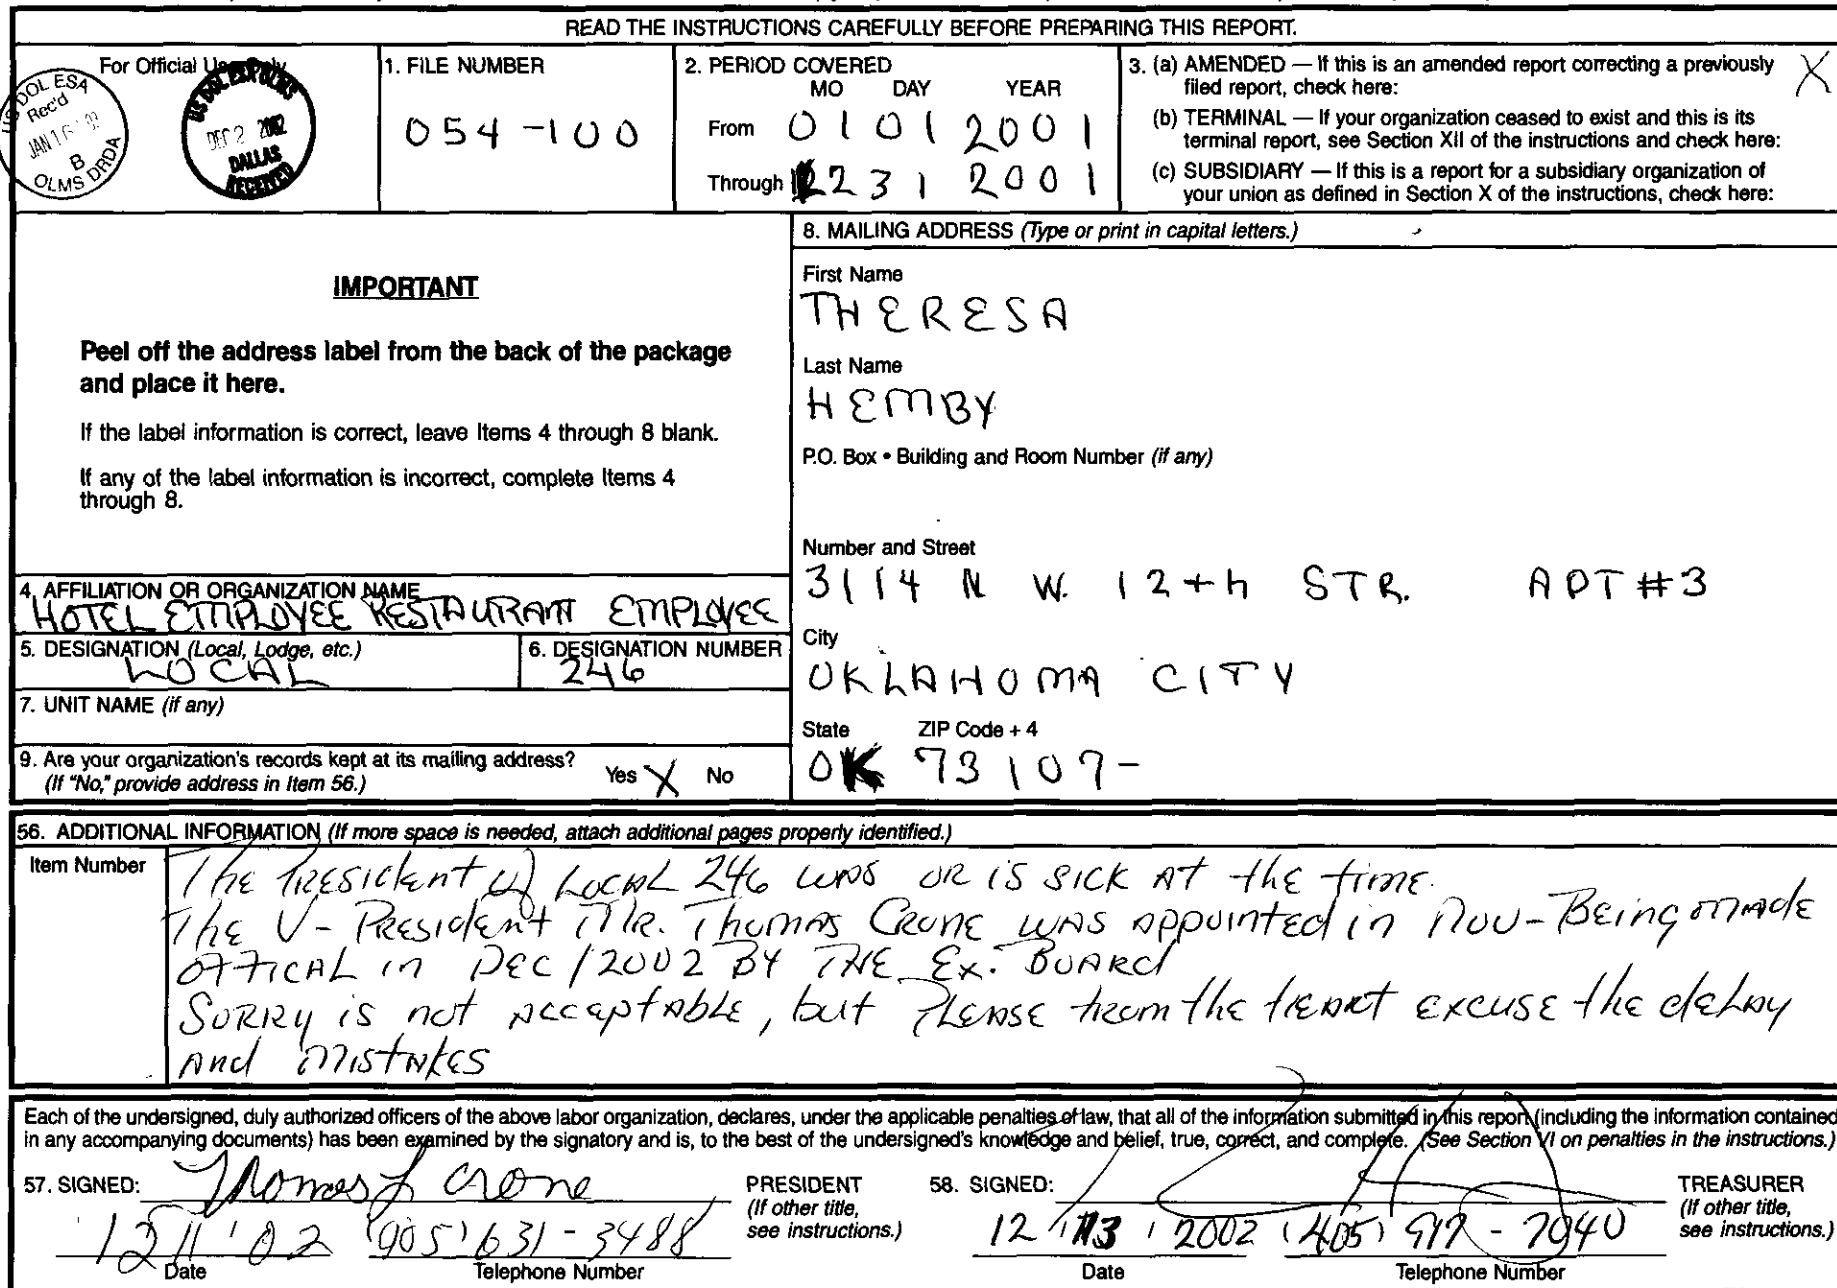 READ THE INSTRUCTIONS CAREFULLY BEFORE PREPARING THIS REPORT.
For Official Use Only
US DOL ESA
Rec'd
JAN 16
B
OLMS DRDA
DEC 2 2002
DALLAS
RECEIVED
1. FILE NUMBER
054-100
2. PERIOD COVERED
MO DAY YEAR
From 01 01 2001
Through 12 31 2001
3. (a) AMENDED — If this is an amended report correcting a previously
filed report, check here: X
(b) TERMINAL — If your organization ceased to exist and this is its
terminal report, see Section XII of the instructions and check here:
(c) SUBSIDIARY — If this is a report for a subsidiary organization of
your union as defined in Section X of the instructions, check here:
IMPORTANT
Peel off the address label from the back of the package
and place it here.
If the label information is correct, leave Items 4 through 8 blank.
If any of the label information is incorrect, complete Items 4
through 8.
4. AFFILIATION OR ORGANIZATION NAME
HOTEL EMPLOYEE RESTAURANT EMPLOYEE
5. DESIGNATION (Local, Lodge, etc.)
LOCAL
6. DESIGNATION NUMBER
246
7. UNIT NAME (if any)
9. Are your organization's records kept at its mailing address?
(If "No," provide address in Item 56.) Yes X No
8. MAILING ADDRESS (Type or print in capital letters.)
First Name
THERESA
Last Name
HEMBY
P.O. Box • Building and Room Number (if any)
Number and Street
3114 N W. 12th STR. APT #3
City
OKLAHOMA CITY
State ZIP Code + 4
OK 73107-
56. ADDITIONAL INFORMATION (If more space is needed, attach additional pages properly identified.)
Item Number
The President of Local 246 was or is sick at the time.
The V-President Mr. Thomas Crone was appointed in Nov-Being made
offical in Dec/2002 By the Ex. Board
Sorry is not acceptable, but Please from the heart excuse the delay
and mistakes
Each of the undersigned, duly authorized officers of the above labor organization, declares, under the applicable penalties of law, that all of the information submitted in this report (including the information contained
in any accompanying documents) has been examined by the signatory and is, to the best of the undersigned's knowledge and belief, true, correct, and complete. (See Section VI on penalties in the instructions.)
57. SIGNED: Thomas L Crone
PRESIDENT
(If other title,
see instructions.)
12/11/02 (905) 631-3488
Date Telephone Number
58. SIGNED:
TREASURER
(If other title,
see instructions.)
12/13/2002 (405) 917-7940
Date Telephone Number